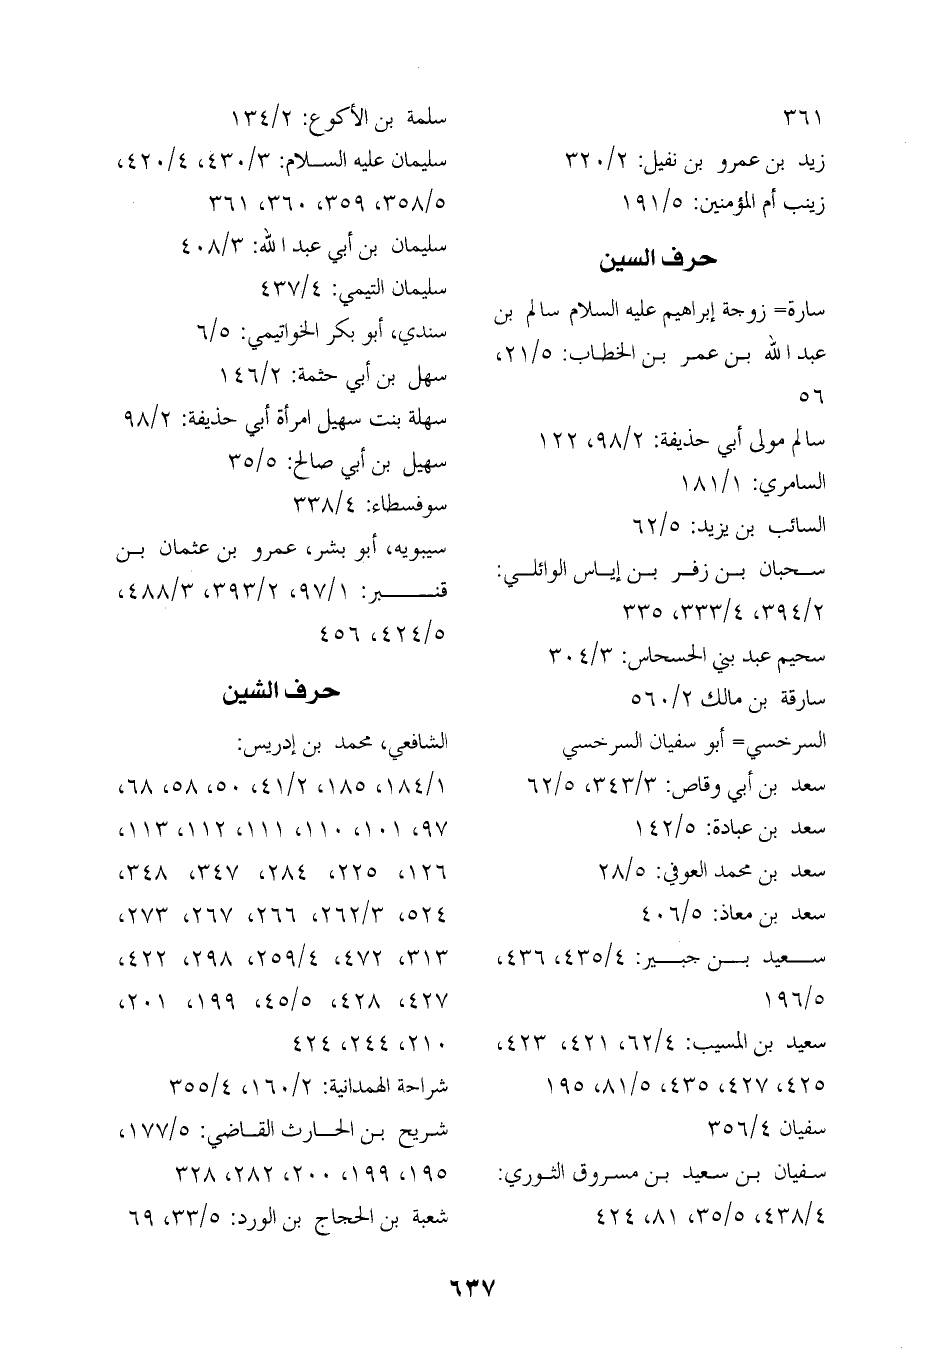 ٣٦١
زيد بن عمرو بن نفيل: ٣٢٠/٢
زينب أم المؤمنين: ١٩١/٥
حرف السين
سارة= زوجة إبراهيم عليه السلام سالم بن
عبد الله بن عمر بن الخطاب: ٢١/٥،
٥٦
سالم مولى أبي حذيفة: ٩٨/٢، ١٢٢
السامري: ١٨١/١
السائب بن يزيد: ٦٢/٥
سحبان بن زفر بن إياس الوائلي:
٣٩٤/٢، ٣٣٣/٤، ٣٣٥
سحيم عبد بني الحسحاس: ٣٠٤/٣
سارقة بن مالك ٥٦٠/٢
السرخسي= أبو سفيان السرخسي
سعد بن أبي وقاص: ٣٤٣/٣، ٦٢/٥
سعد بن عبادة: ١٤٢/٥
سعد بن محمد العوفي: ٢٨/٥
سعد بن معاذ: ٤٠٦/٥
سعيد بن جبير: ٤٣٥/٤، ٤٣٦،
١٩٦/٥
سعيد بن المسيب: ٦٢/٤، ٤٢١، ٤٢٣،
٤٢٥، ٤٢٧، ٤٣٥، ٨١/٥، ١٩٥
سفيان ٣٥٦/٤
سفيان بن سعيد بن مسروق الثوري:
٤٣٨/٤، ٣٥/٥، ٨١، ٤٢٤
سلمة بن الأكوع: ١٣٤/٢
سليمان عليه السلام: ٤٣٠/٣، ٤٢٠/٤،
٣٥٨/٥، ٣٥٩، ٣٦٠، ٣٦١
سليمان بن أبي عبد الله: ٤٠٨/٣
سليمان التيمي: ٤٣٧/٤
سندي، أبو بكر الخواتيمي: ٦/٥
سهل بن أبي حثمة: ١٤٦/٢
سهلة بنت سهيل امرأة أبي حذيفة: ٩٨/٢
سهيل بن أبي صالح: ٣٥/٥
سوفسطاء: ٣٣٨/٤
سيبويه، أبو بشر، عمرو بن عثمان بن
قنبر: ٩٧/١، ٣٩٣/٢، ٤٨٨/٣،
٤٢٤/٥، ٤٥٦
حرف الشين
الشافعي، محمد بن إدريس:
١٨٤/١، ١٨٥، ٤١/٢، ٥٠، ٥٨، ٦٨،
٩٧، ١٠١، ١١٠، ١١١، ١١٢، ١١٣،
١٢٦، ٢٢٥، ٢٨٤، ٣٤٧، ٣٤٨،
٥٢٤، ٢٦٢/٣، ٢٦٦، ٢٦٧، ٢٧٣،
٣١٣، ٤٧٢، ٢٥٩/٤، ٢٩٨، ٤٢٢،
٤٢٧، ٤٢٨، ٤٥/٥، ١٩٩، ٢٠١،
٢١٠، ٢٤٤، ٤٢٤
شراحة الهمدانية: ١٦٠/٢، ٣٥٥/٤
شريح بن الحارث القاضي: ١٧٧/٥،
١٩٥، ١٩٩، ٢٠٠، ٢٨٢، ٣٢٨
شعبة بن الحجاج بن الورد: ٣٣/٥، ٦٩
٦٣٧